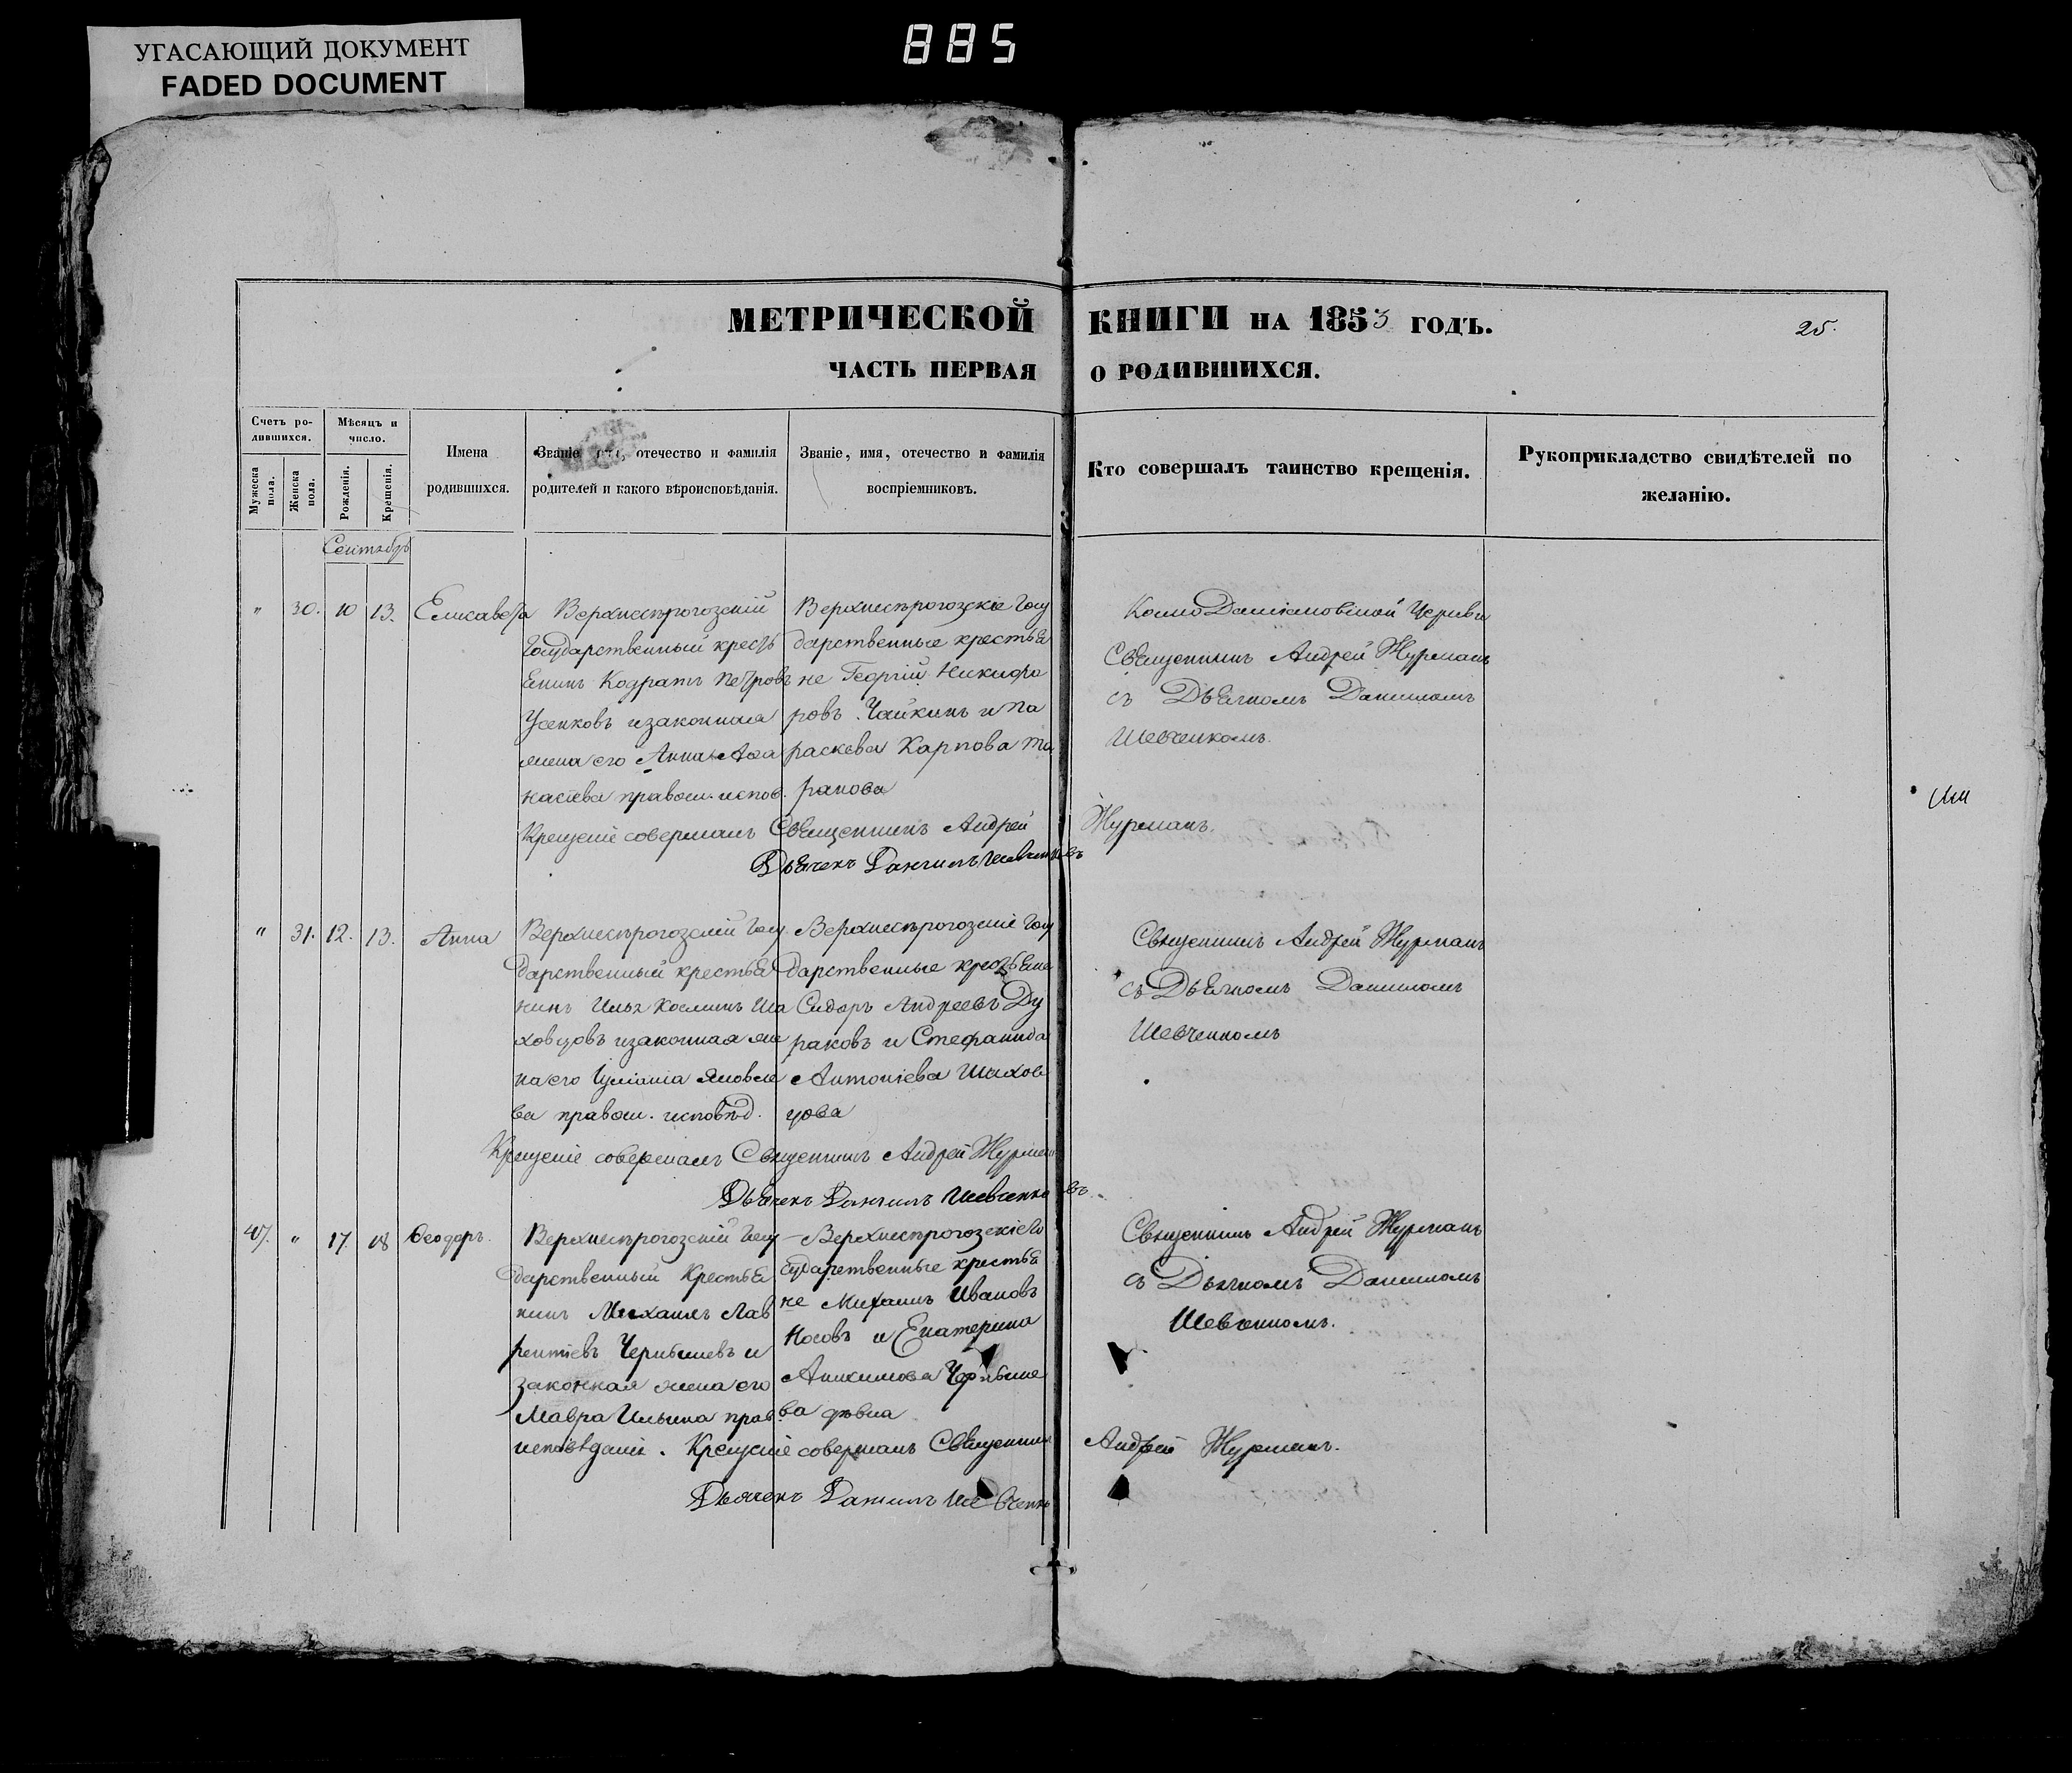 УГАСАЮЩИЙ ДОКУМЕНТ
FADED DOCUMENT
885
МЕТРИЧЕСКОЙ КНИГИ НА 1853 ГОДЪ.
25.
ЧАСТЬ ПЕРВАЯ О РОДИВШИХСЯ.
Счетъ ро-
дившихся.
Мужеска пола.
Женска пола.
Мѣсяцъ и
число.
Рожденія.
Крещенія.
Имена
родившихся.
Званіе, отечество и фамилія
родителей и какого вѣроисповѣданія.
Званіе, имя, отечество и фамилія
воспріемниковъ.
Кто совершалъ таинство крещенія.
Рукоприкладство свидѣтелей по
желанію.
Сентябрь
" 30. 10 13. Елисавета
Верхнесѣрогозскій
Государственный кресть
янинъ Кодратъ Петровъ
Усенковъ изаконная
жена его Анна Афа
насіева правосл. испов.
Верхнесѣрогозскіе Госу
дарственные крестья
не Георгій Никифо
ровъ Чайкинъ и Па
раскева Карпова Та
ранова
Космо Даміановской Церкви
Священникъ Андрей Журманъ
съ Дьячкомъ Даниломъ
Шевченкомъ.
Крещеніе совершалъ Священникъ Андрей Журманъ.
Дьячекъ Даніилъ Шевченковъ
" 31. 12. 13. Анна
Верхнесѣрогозскій Госу
дарственный крестья
нинъ Илья Косминъ Ша
ховцовъ изаконная же
на его Іуліанія Яковле
ва правосл. исповѣд.
Верхнесѣрогозскіе Госу
дарственные крестьяне
Сидоръ Андреевъ Ду
раковъ и Стефанида
Антоніева Шахов
цова
Священникъ Андрей Журманъ
съ Дьячкомъ Даниломъ
Шевченкомъ
Крещеніе совершалъ Священникъ Андрей Журман
Дьячекъ Даніилъ Шевченковъ
40. " 17. 18 Феодоръ.
Верхнесѣрогозскій Госу
дарственный Крестья
нинъ Михаилъ Лав
рентіевъ Чернышевъ и
законная жена его
Мавра Ильина прав
исповѣданія.
Верхнесѣрогозскіе Го
сударственные крестья
не Михаилъ Ивановъ
Носовъ и Екатерина
Анисимова Черныше
ва дѣвка
Священникъ Андрей Журманъ
съ Дьячкомъ Даниломъ
Шевченкомъ.
Крещеніе совершалъ Священникъ Андрей Журманъ.
Дьячекъ Даніилъ Шевченко